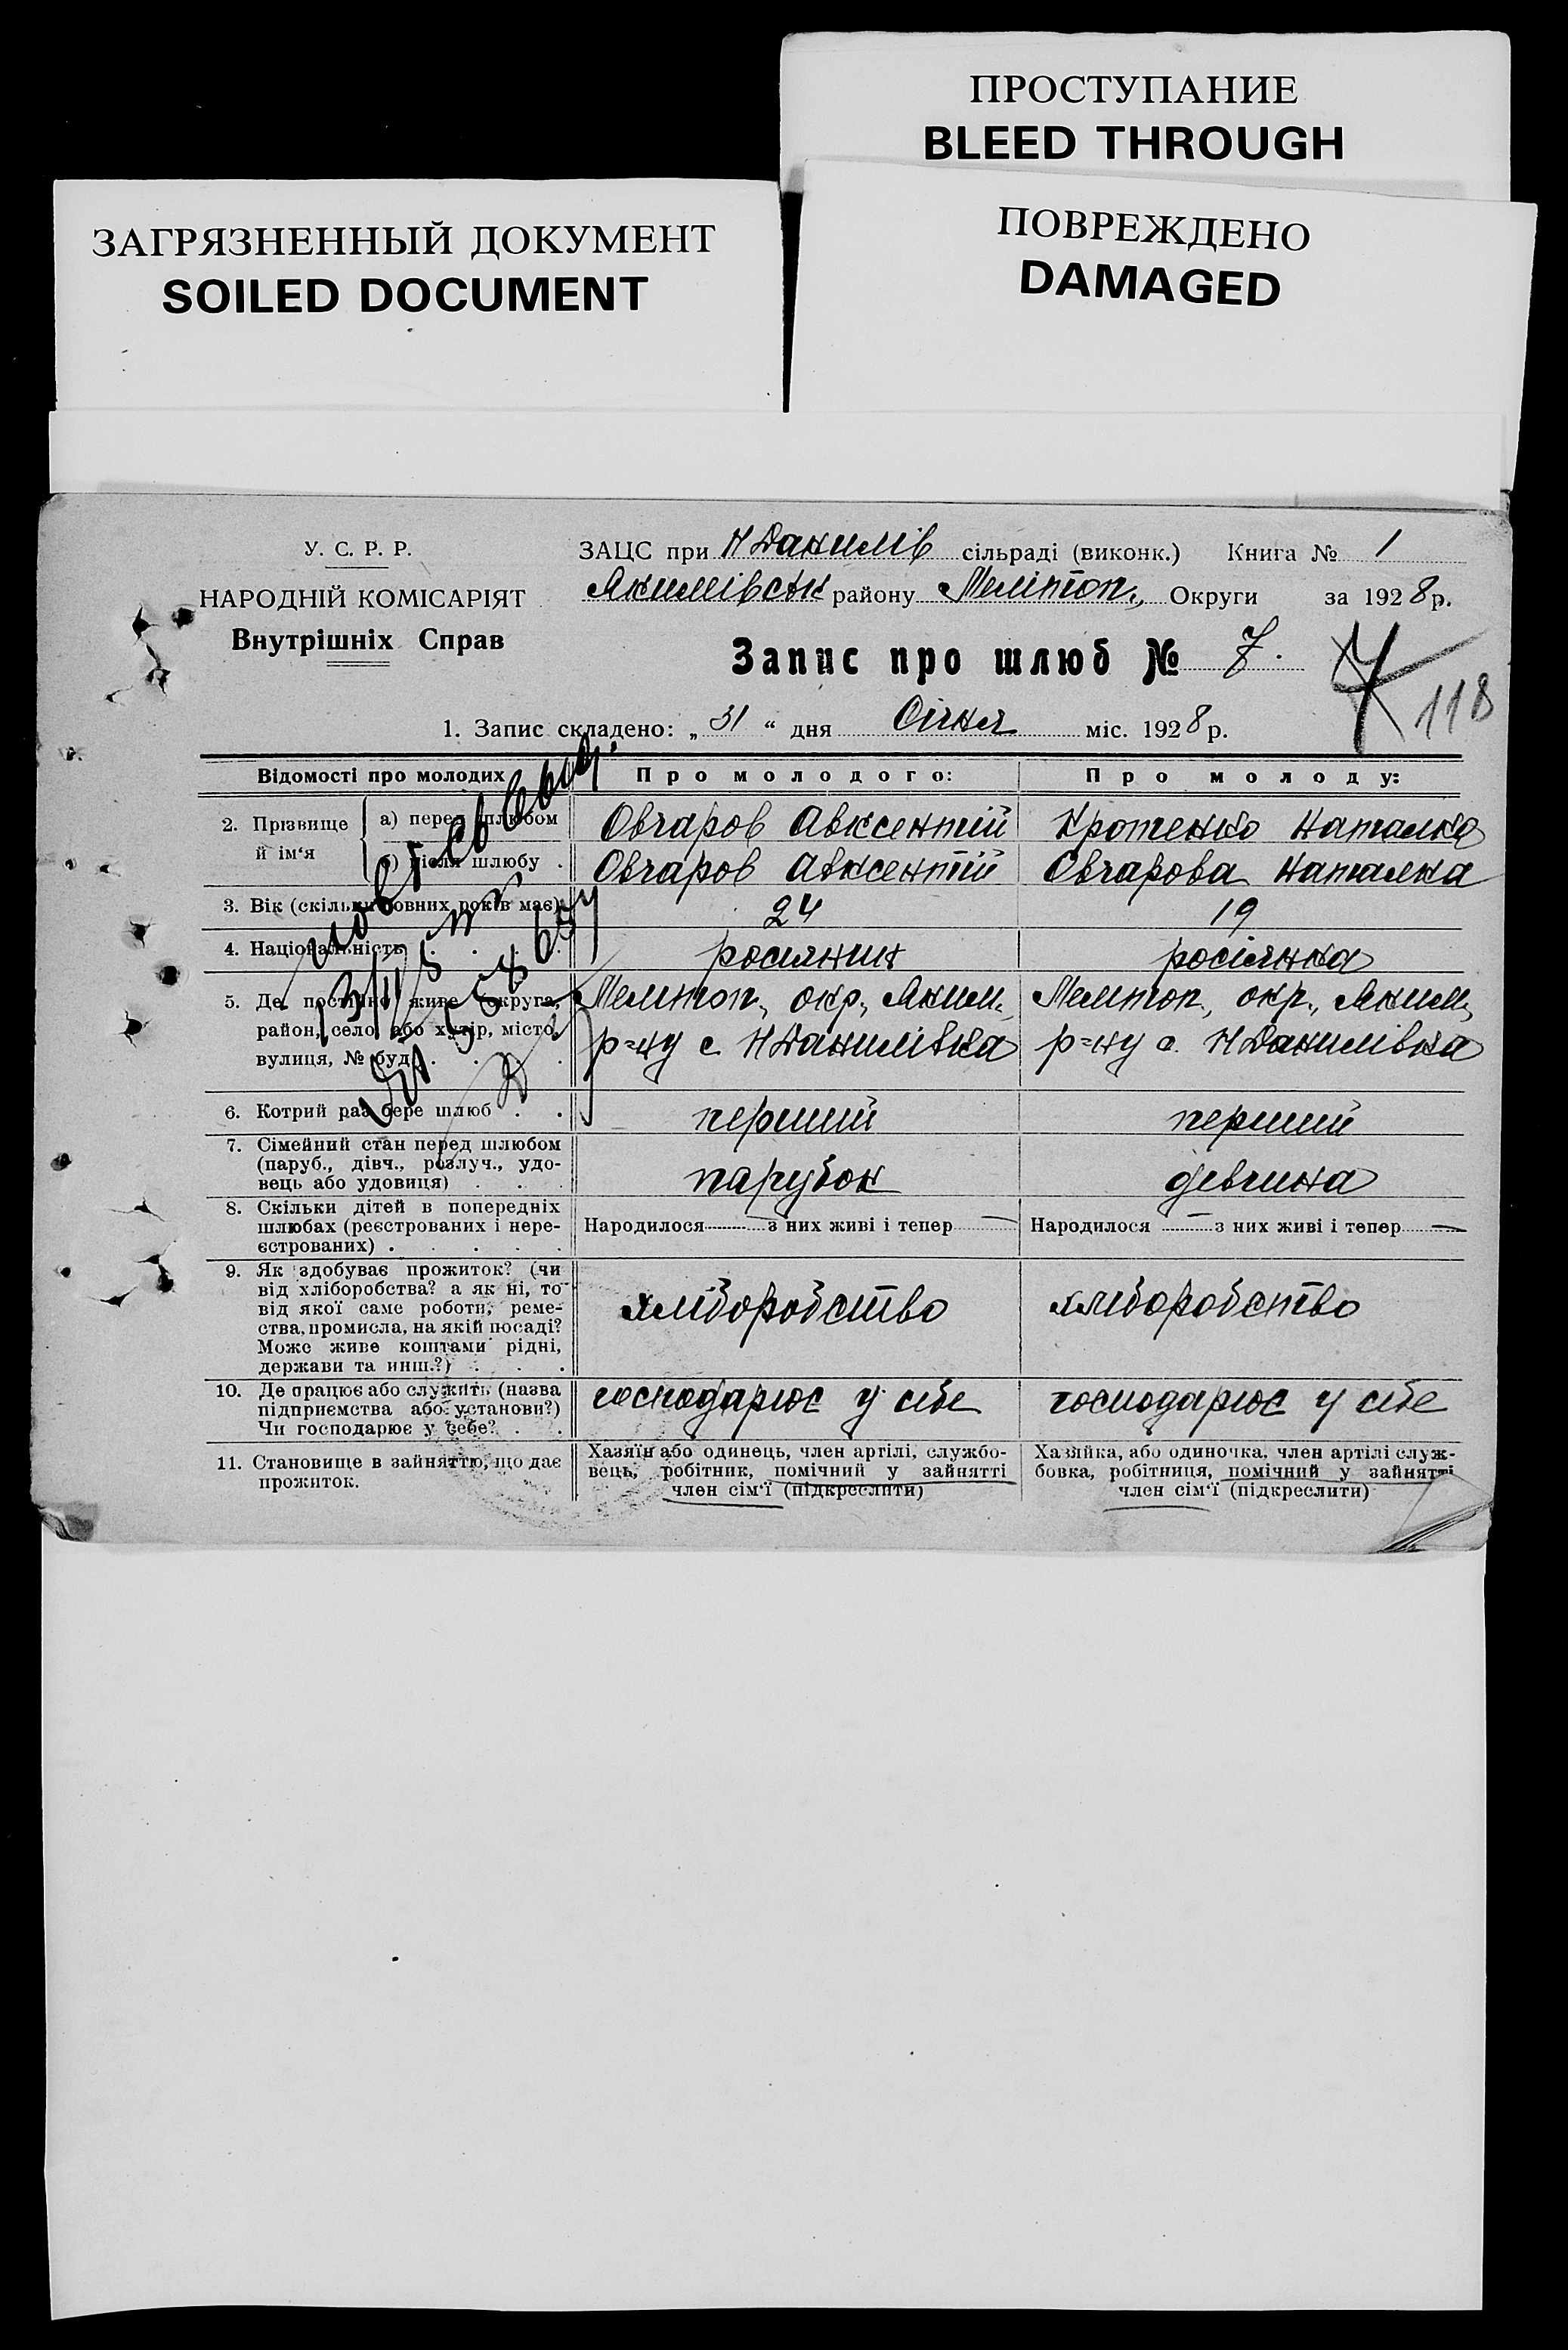 ПРОСТУПАНИЕ
BLEED THROUGH
ЗАГРЯЗНЕННЫЙ ДОКУМЕНТ
SOILED DOCUMENT
ПОВРЕЖДЕНО
DAMAGED
У. С. Р. Р.
НАРОДНІЙ КОМІСАРІЯТ
Внутрішніх Справ
ЗАЦС при Н Данилів сільраді (виконк.) Книга № 1
Якимівськ району Мелітоп., Округи за 1928 р.
Запис про шлюб № 7.
7
118
1. Запис складено: „ 31 “ дня Січня міс. 1928 р.
Відомості про молодих Про молодого: Про молоду:
2. Прізвище й ім‘я
а) перед шлюбом Овчаров Авксентій Кротенко Наталка
б) після шлюбу . Овчаров Авксентій Овчарова Наталка
3. Вік (скільки повних років має) 24 19
4. Національність . . . . росиянин росіянка
5. Де постійно живе (округа, Мелітоп., окр., Яким., Мелітоп., окр., Яким.,
район, село, або хутір, місто, р=ну с. Н Данилівка р=ну с. Н Данилівка
вулиця, № буд.) . . . .
6. Котрий раз бере шлюб . . перший перший
7. Сімейний стан перед шлюбом
(паруб., дівч., розлуч., удо-
вець або удовиця) . . . парубок девчина
8. Скільки дітей в попередніх
шлюбах (реєстрованих і нере- Народилося — з них живі і тепер — Народилося — з них живі і тепер —
єстрованих) . . . . .
9. Як здобуває прожиток? (чи
від хліборобства? а як ні, то
від якої саме роботи, реме- хліборобство хліборобство
ства, промисла, на якій посаді?
Може живе коштами рідні,
держави та инш.?) . . .
10. Де працює або служить (назва господарює у себе господарює у себе
підприємства або установи?)
Чи господарює у себе? . .
11. Становище в зайняттю, що дає
прожиток.
Хазяїн або одинець, член артілі, службо-
вець, робітник, помічний у зайнятті
член сім‘ї (підкреслити)
Хазяйка, або одиночка, член артілі служ-
бовка, робітниця, помічний у зайнятті
член сім‘ї (підкреслити)